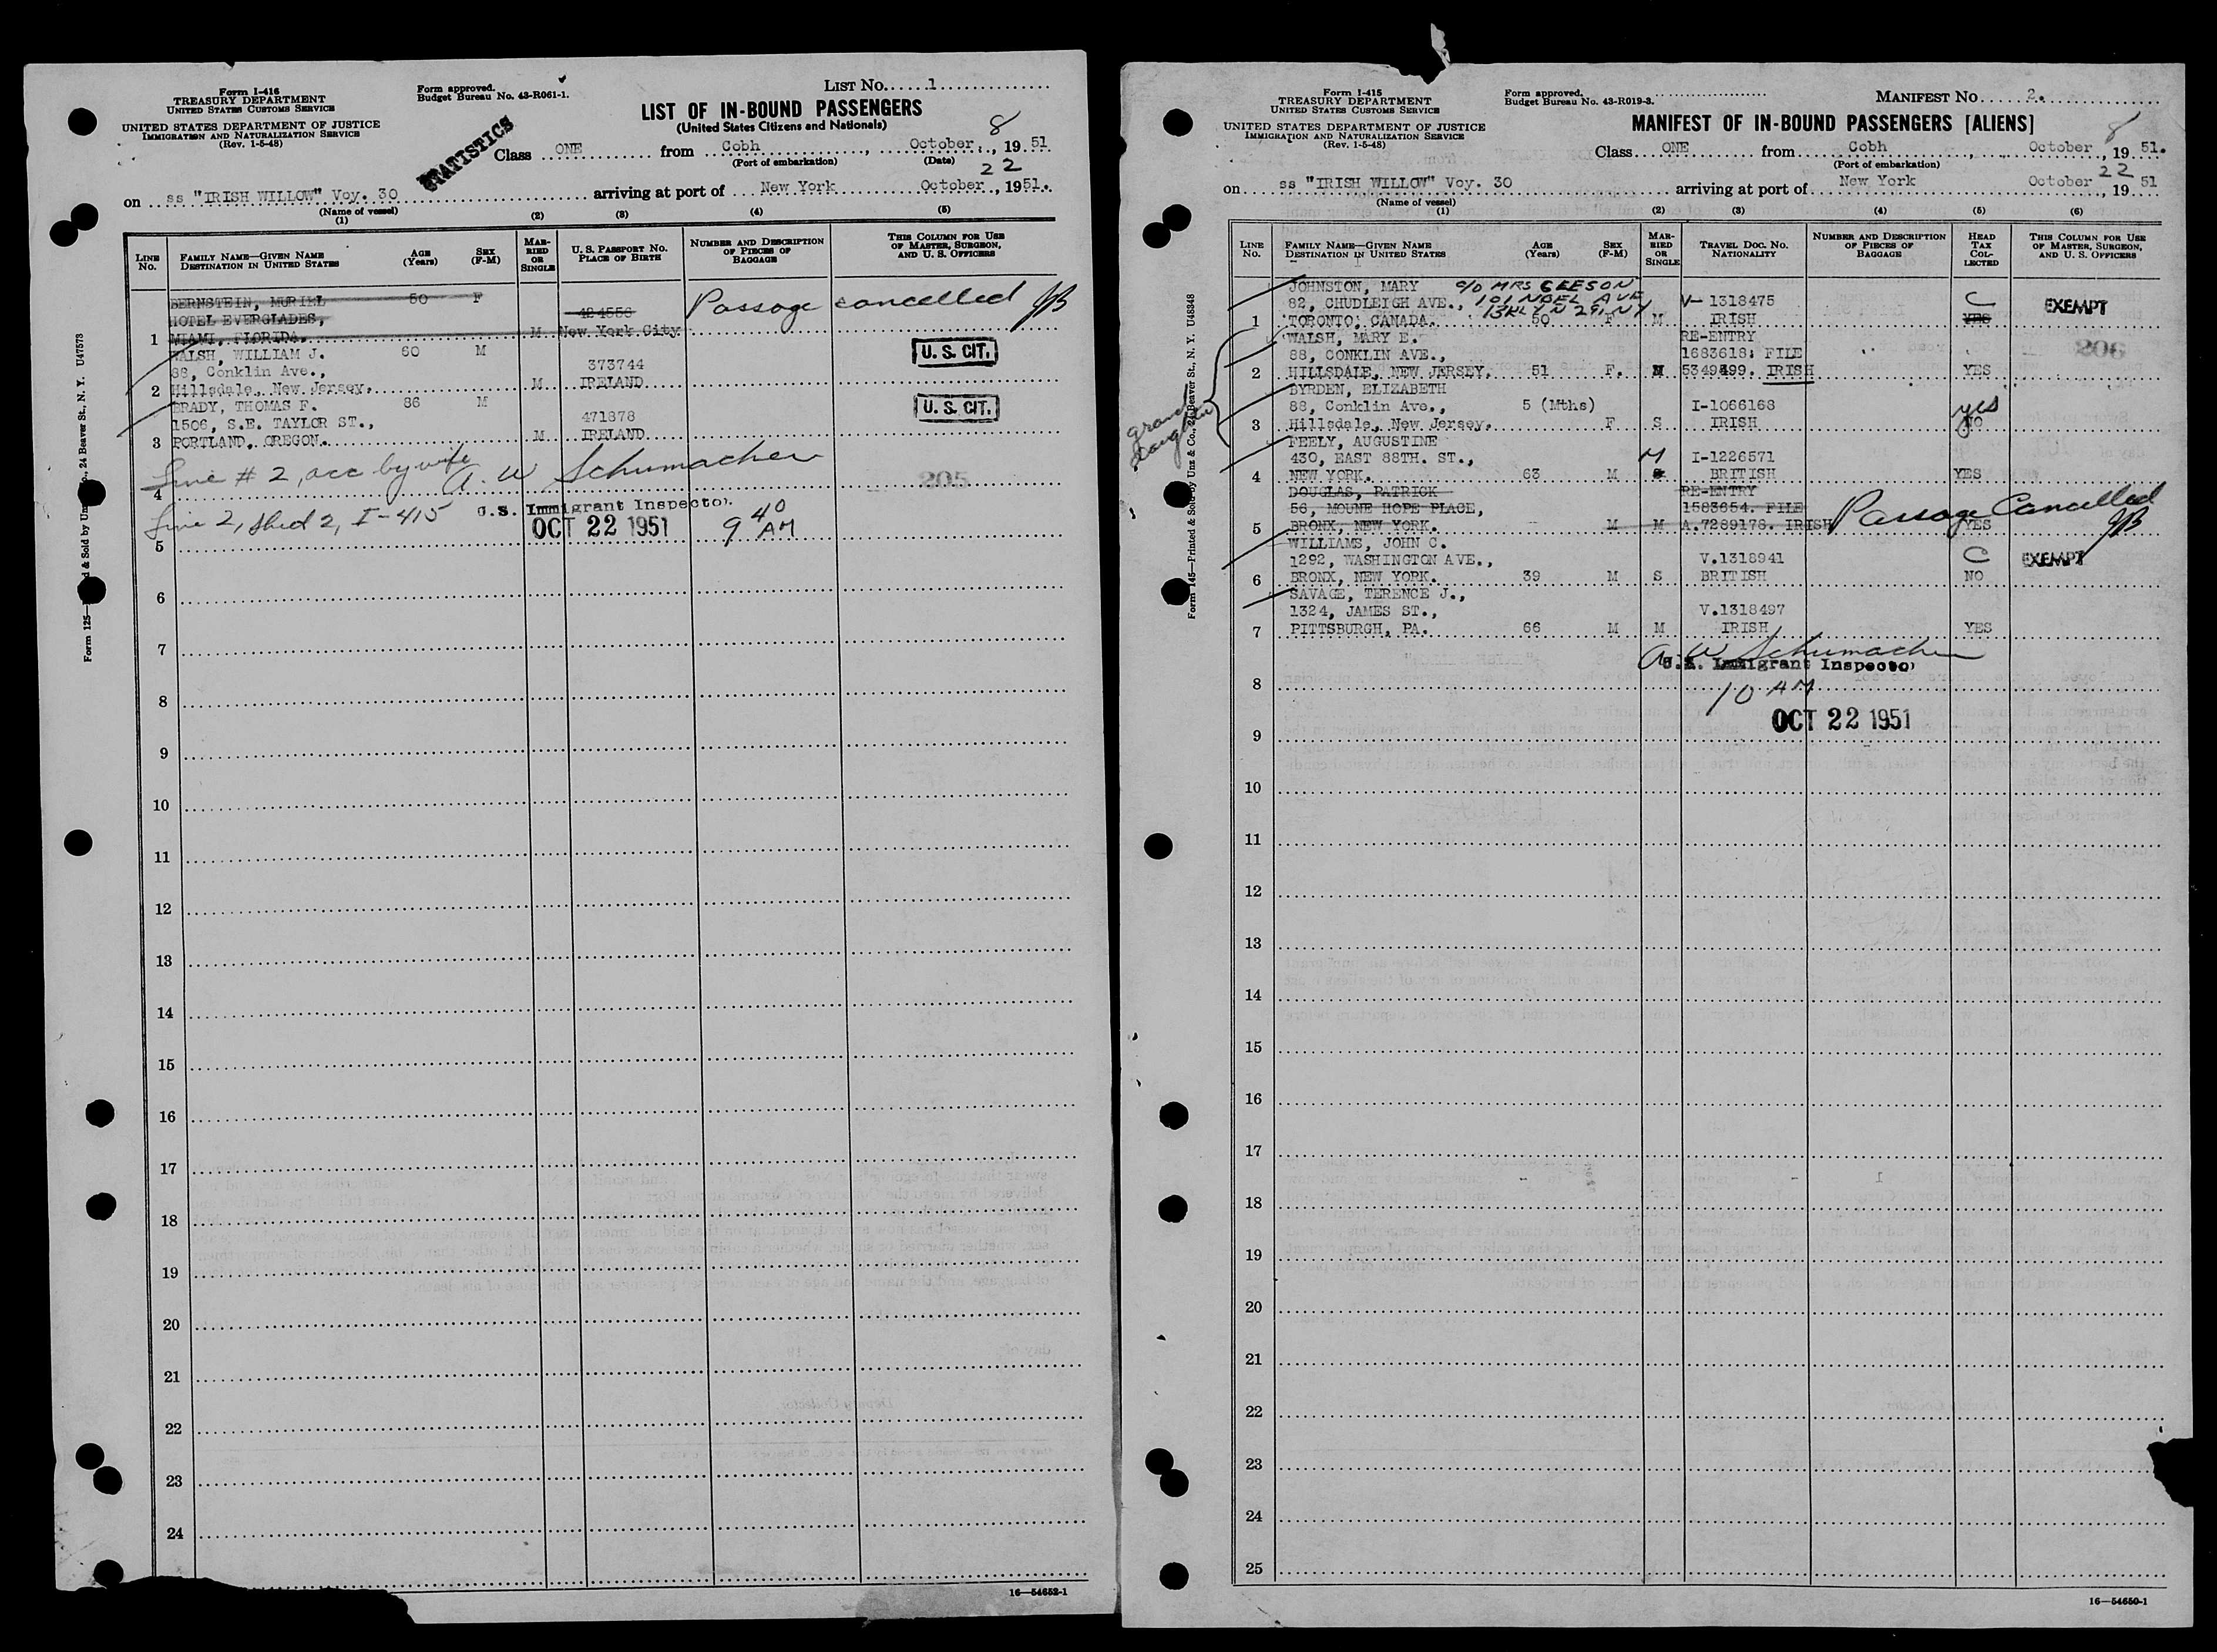 Form I-416
TREASURY DEPARTMENT
UNITED STATES CUSTOMS SERVICE
UNITED STATES DEPARTMENT OF JUSTICE
IMMIGRATION AND NATURALIZATION SERVICE
(Rev. 1-5-48)
Form approved.
Budget Bureau No. 43-R061-1.
STATISTICS
LIST No. 1
LIST OF IN-BOUND PASSENGERS
(United States Citizens and Nationals)
Class ONE from Cobh, October 8, 1951
(Port of embarkation) (Date)
on ss "IRISH WILLOW" Voy. 30 arriving at port of New York October 22, 1951.
(Name of vessel)
(1) (2) (3) (4) (5)
LINE No. FAMILY NAME—GIVEN NAME DESTINATION IN UNITED STATES AGE (Years) SEX (F-M) MARRIED OR SINGLE U. S. PASSPORT No. PLACE OF BIRTH NUMBER AND DESCRIPTION OF PIECES OF BAGGAGE THIS COLUMN FOR USE OF MASTER, SURGEON, AND U. S. OFFICERS
BERNSTEIN, MURIEL 50 F Passage cancelled JB
HOTEL EVERGLADES, 424556
1 MIAMI, FLORIDA. M New York City
WALSH, WILLIAM J. 60 M U. S. CIT.
88, Conklin Ave., 373744
2 Hillsdale, New Jersey. M IRELAND
BRADY, THOMAS F. 86 M U. S. CIT.
1506, S.E. TAYLOR ST., 471878
3 PORTLAND, OREGON. M IRELAND
Line # 2, acc by wife A. W Schumacher
4 205
Line 2, shed 2, I-415 U.S. Immigrant Inspector.
5 OCT 22 1951 9 40 AM
6
7
8
9
10
11
12
13
14
15
16
17
18
19
20
21
22
23
24
16—54652-1
Form I-415
TREASURY DEPARTMENT
UNITED STATES CUSTOMS SERVICE
UNITED STATES DEPARTMENT OF JUSTICE
IMMIGRATION AND NATURALIZATION SERVICE
(Rev. 1-5-48)
Form approved.
Budget Bureau No. 43-R019-3.
MANIFEST No. 2.
MANIFEST OF IN-BOUND PASSENGERS [ALIENS]
Class ONE from Cobh, October 8, 1951.
(Port of embarkation)
on ss "IRISH WILLOW" Voy. 30 arriving at port of New York October 22, 1951
(Name of vessel)
(1) (2) (3) (4) (5) (6)
LINE No. FAMILY NAME—GIVEN NAME DESTINATION IN UNITED STATES AGE (Years) SEX (F-M) MARRIED OR SINGLE TRAVEL DOC. NO. NATIONALITY NUMBER AND DESCRIPTION OF PIECES OF BAGGAGE HEAD TAX COLLECTED THIS COLUMN FOR USE OF MASTER, SURGEON, AND U. S. OFFICERS
JOHNSTON, MARY c/o MRS GEESON
82, CHUDLEIGH AVE., 101 NOEL AVE V-1318475 C EXEMPT
1 TORONTO, CANADA. BKLYN 29 NY 50 F M IRISH YES
WALSH, MARY E. RE-ENTRY
88, CONKLIN AVE., 1683618; FILE 206
2 HILLSDALE, NEW JERSEY. 51 F. M 5349499. IRISH YES
BYRDEN, ELIZABETH
grand daughter
88, Conklin Ave., 5 (Mths) I-1066168 yes
3 Hillsdale, New Jersey. F S IRISH NO
FEELY, AUGUSTINE
430, EAST 88TH. ST., M I-1226571
4 NEW YORK. 63 M BRITISH YES
DOUGLAS, PATRICK RE-ENTRY
56, MOUNE HOPE PLACE, 1583654. FILE Passage Cancelled JB
5 BRONX, NEW YORK. M M A.7289178. IRISH YES
WILLIAMS, JOHN C.
1292, WASHINGTON AVE., V.1318941 C EXEMPT
6 BRONX, NEW YORK. 39 M S BRITISH NO
SAVAGE, TERENCE J.,
1324, JAMES ST., V.1318497
7 PITTSBURGH, PA. 66 M M IRISH YES
A. W Schumacher
U.S. Immigrant Inspector
8 10 AM
OCT 22 1951
9
10
11
12
13
14
15
16
17
18
19
20
21
22
23
24
25
16—54650-1